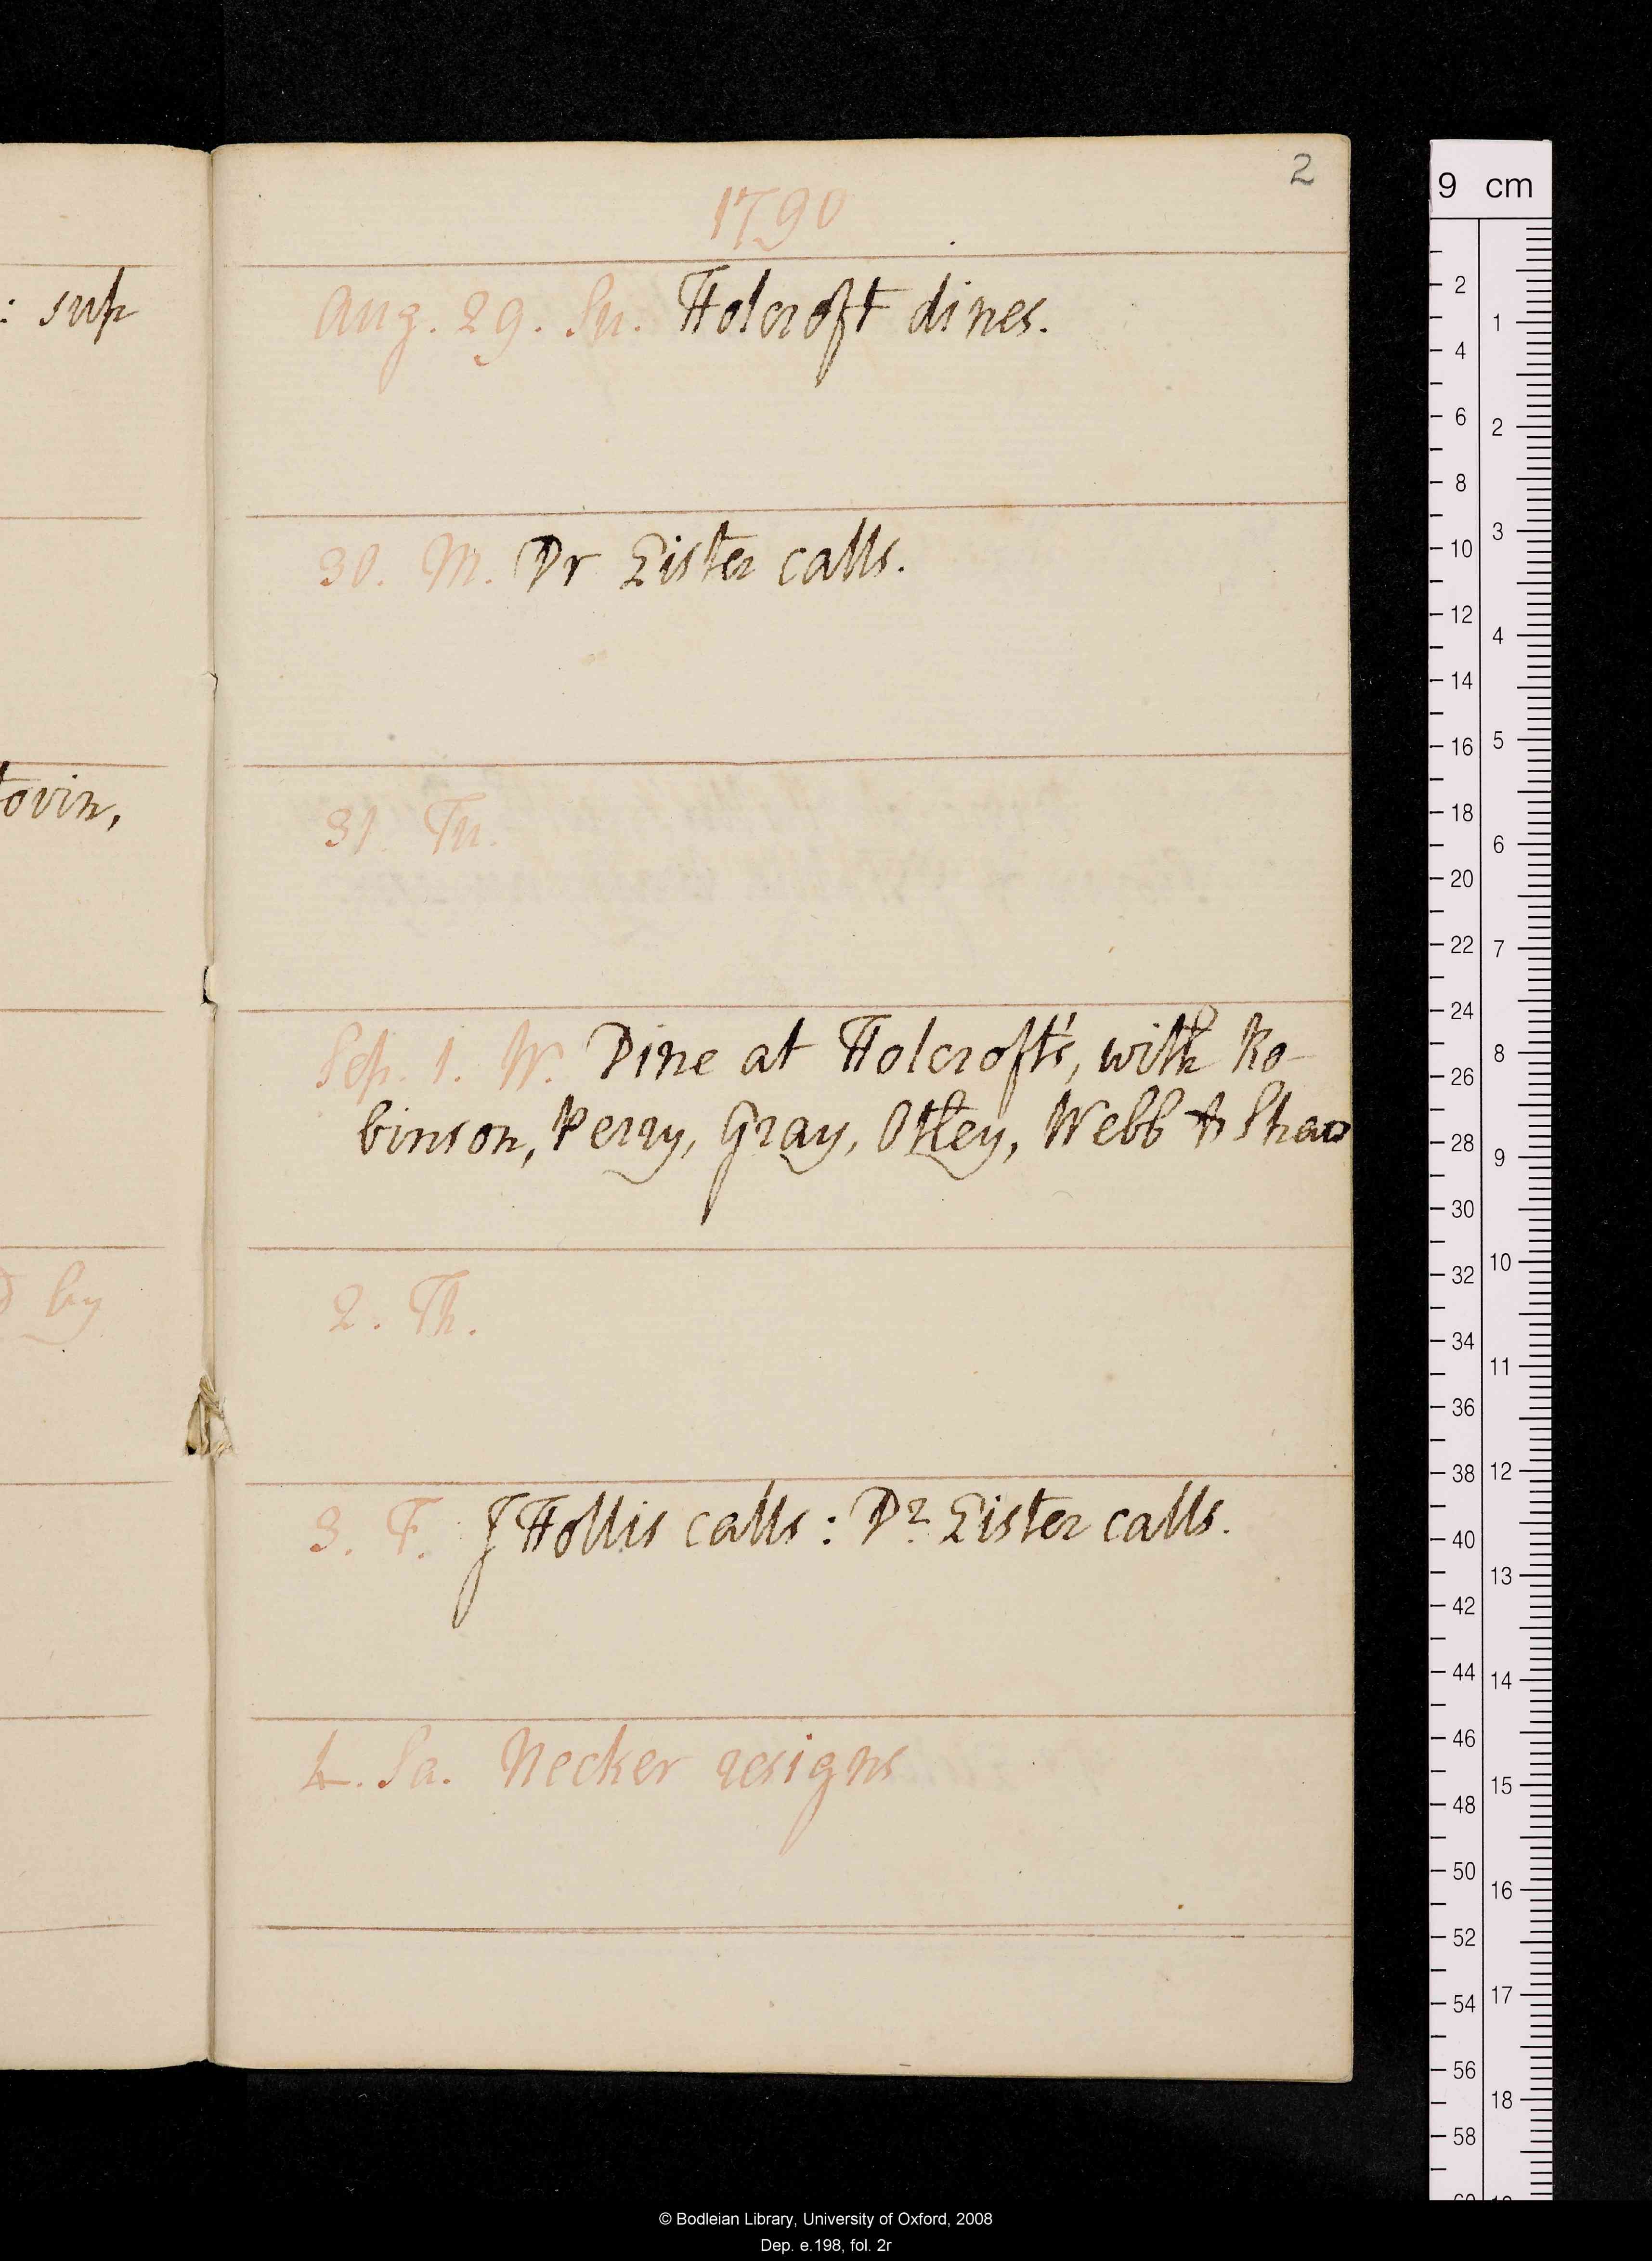 2
1790
: sup
Aug. 29. Su. Holcroft dines.
30. M. Dr Lister calls.
tovin,
31. Tu.
Sep. 1. W. Dine at Holcroft's, with Ro-
binson, Perry, Gray, Otley, Webb & Shaw
by
2. Th.
3. F. J Hollis calls: Dr. Lister calls.
4. Sa. Necker resigns
9 cm
2
4
6
8
10
12
14
16
18
20
22
24
26
28
30
32
34
36
38
40
42
44
46
48
50
52
54
56
58
1
2
3
4
5
6
7
8
9
10
11
12
13
14
15
16
17
18
© Bodleian Library, University of Oxford, 2008
Dep. e.198, fol. 2r